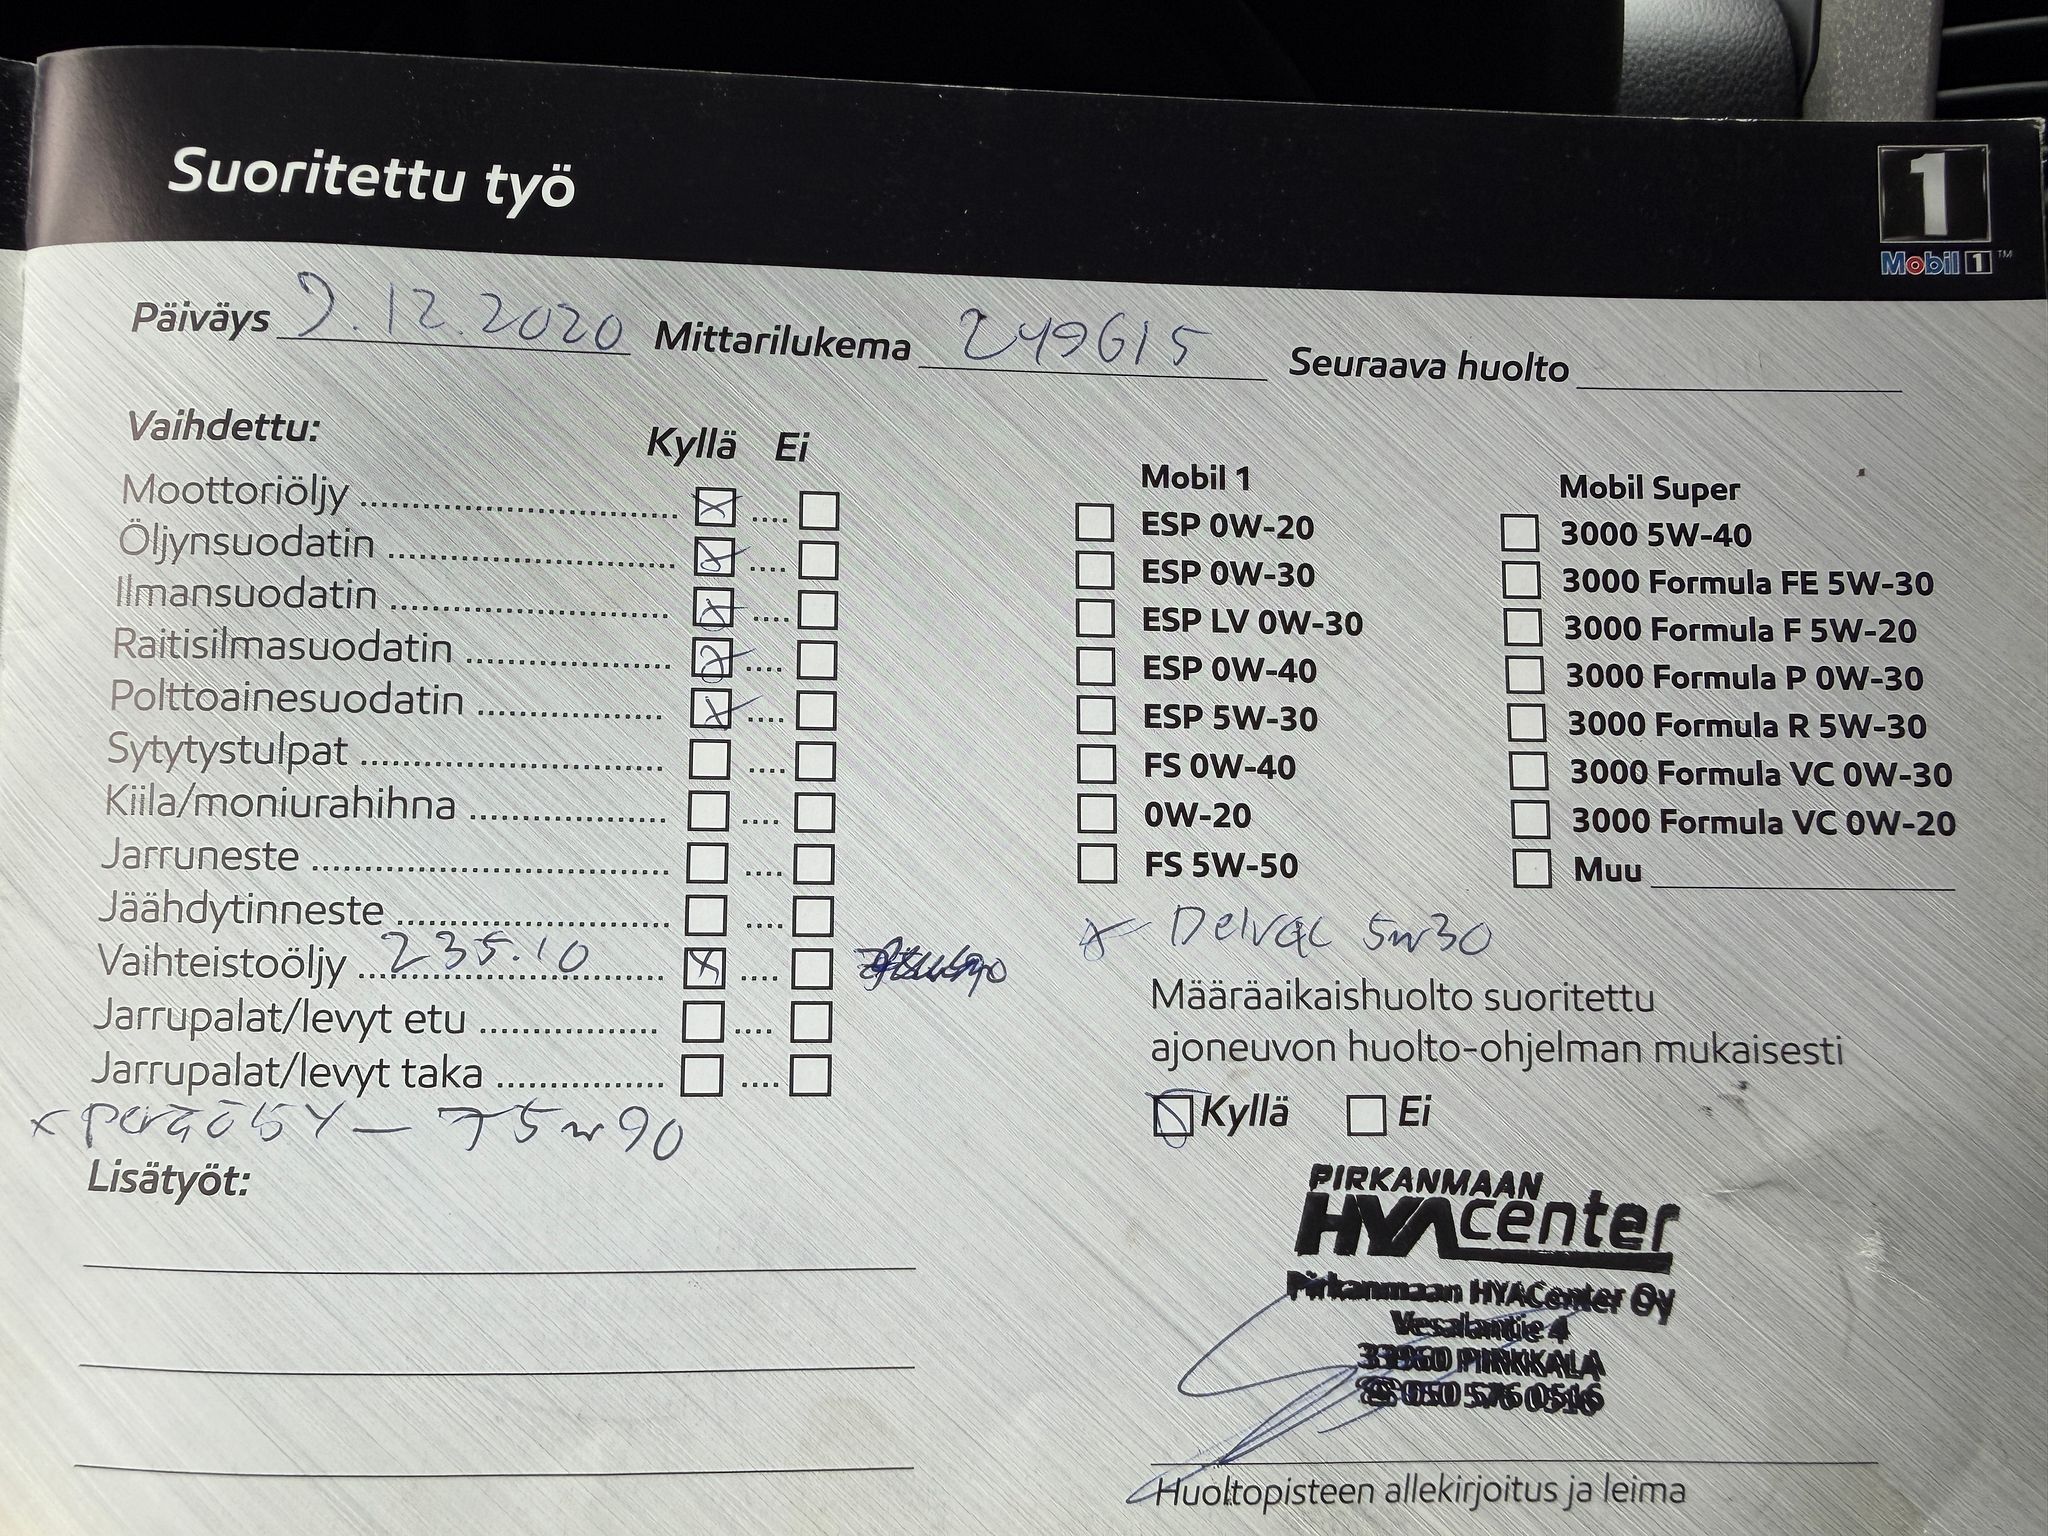 Suoritettu työ
1
Mobil 1™
Päiväys 9.12.2020 Mittarilukema 249615 Seuraava huolto
Vaihdettu: Kyllä Ei
Moottoriöljy
Öljynsuodatin
Ilmansuodatin
Raitisilmasuodatin
Polttoainesuodatin
Sytytystulpat
Kiila/moniurahihna
Jarruneste
Jäähdytinneste
Vaihteistoöljy 235.10
Jarrupalat/levyt etu
Jarrupalat/levyt taka
x peräöljy – 75w90
Lisätyöt:
Mobil 1
ESP 0W-20
ESP 0W-30
ESP LV 0W-30
ESP 0W-40
ESP 5W-30
FS 0W-40
0W-20
FS 5W-50
Mobil Super
3000 5W-40
3000 Formula FE 5W-30
3000 Formula F 5W-20
3000 Formula P 0W-30
3000 Formula R 5W-30
3000 Formula VC 0W-30
3000 Formula VC 0W-20
Muu
x Delvac 5w30
Määräaikaishuolto suoritettu
ajoneuvon huolto-ohjelman mukaisesti
Kyllä Ei
PIRKANMAAN
HYAcenter
Pirkanmaan HYACenter Oy
Vesalantie 4
33960 PIRKKALA
☎ 050 576 0516
Huoltopisteen allekirjoitus ja leima